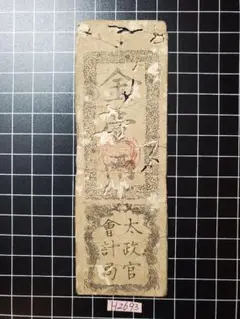 金壹兩
太政官
會計局
H2693